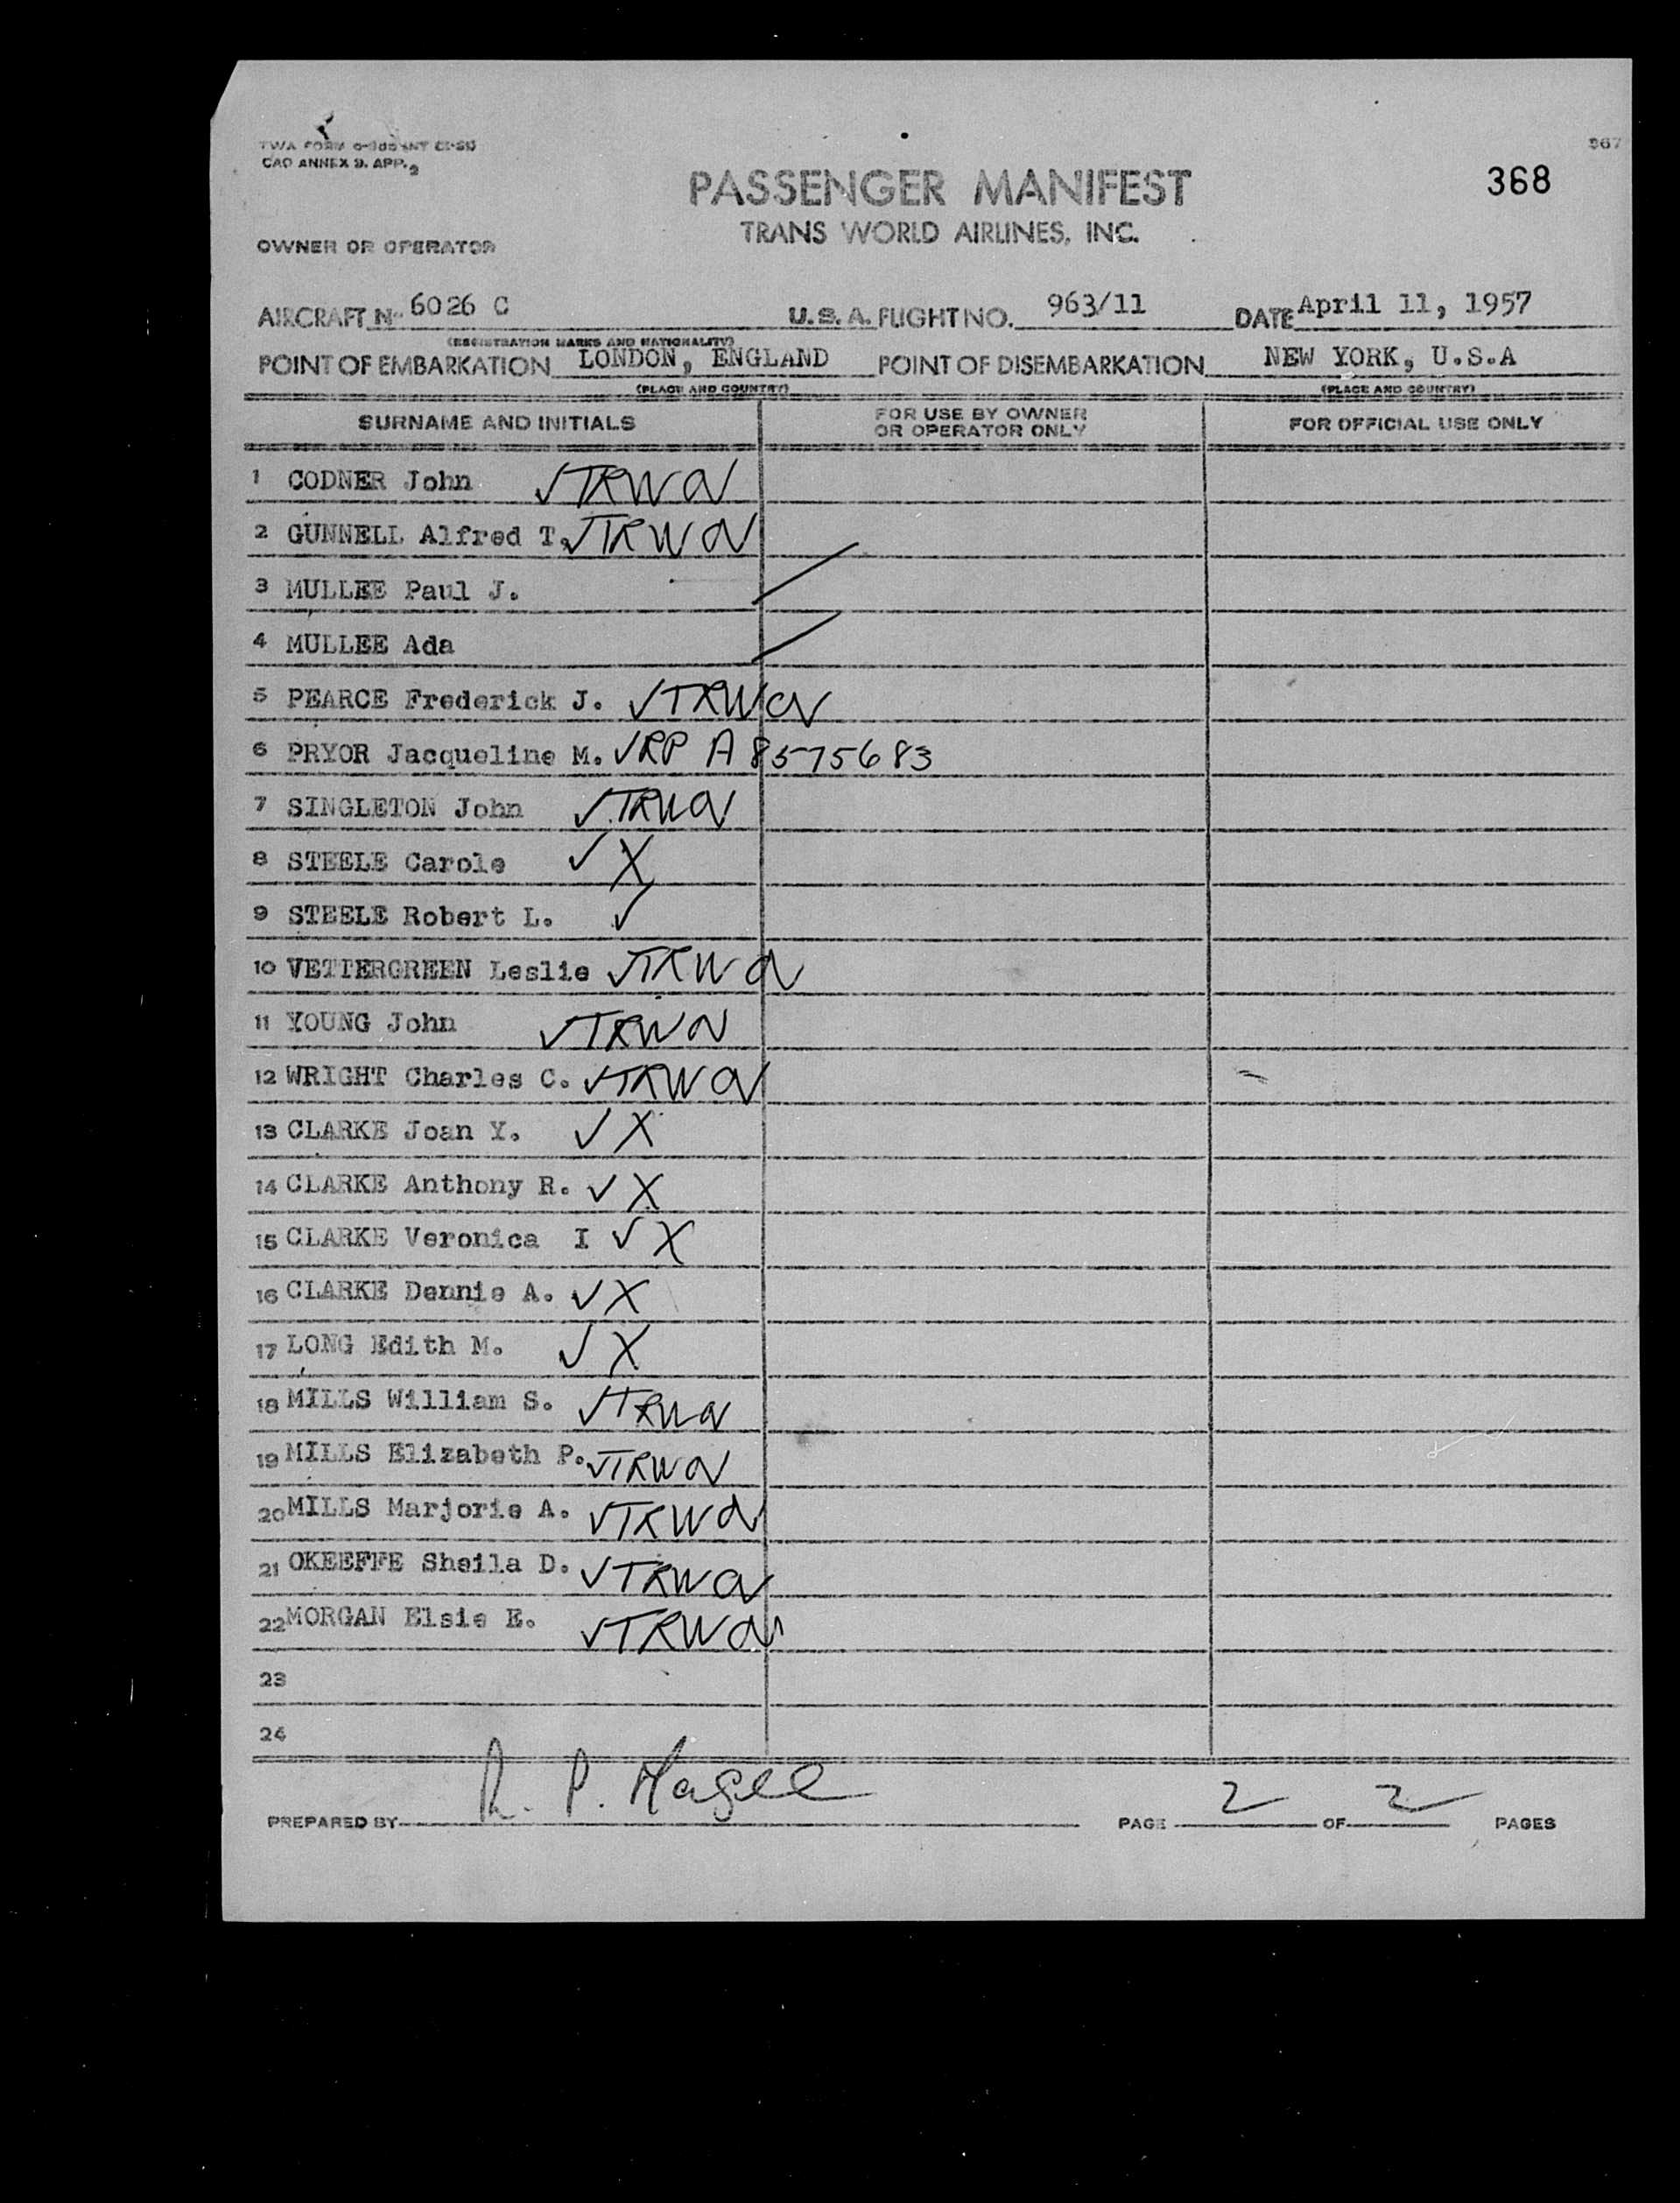 367
CAO ANNEX 9. APP. 2
368
PASSENGER MANIFEST
TRANS WORLD AIRLINES, INC.
OWNER OR OPERATOR
AIRCRAFT N- 6026 C U.S.A. FLIGHT NO. 963/11 DATE April 11, 1957
(REGISTRATION MARKS AND NATIONALITY)
POINT OF EMBARKATION LONDON, ENGLAND POINT OF DISEMBARKATION NEW YORK, U.S.A
(PLACE AND COUNTRY) (PLACE AND COUNTRY)
SURNAME AND INITIALS FOR USE BY OWNER OR OPERATOR ONLY FOR OFFICIAL USE ONLY
1 CODNER John ✓TRWA
2 GUNNELL Alfred T. ✓TRWA
3 MULLEE Paul J.
4 MULLEE Ada
5 PEARCE Frederick J. ✓TRWA
6 PRYOR Jacqueline M. ✓RP A8575683
7 SINGLETON John ✓TRWA
8 STEELE Carole ✓ X
9 STEELE Robert L. ✓
10 VETTERGREEN Leslie ✓TRWA
11 YOUNG John ✓TRWA
12 WRIGHT Charles C. ✓TRWA
13 CLARKE Joan Y. ✓ X
14 CLARKE Anthony R. ✓ X
15 CLARKE Veronica I ✓ X
16 CLARKE Dennis A. ✓ X
17 LONG Edith M. ✓ X
18 MILLS William S. ✓TRWA
19 MILLS Elizabeth P. ✓TRWA
20 MILLS Marjorie A. ✓TRWA
21 OKEEFFE Sheila D. ✓TRWA
22 MORGAN Elsie E. ✓TRWA
23
24
PREPARED BY R. P. Magee PAGE 2 OF 2 PAGES